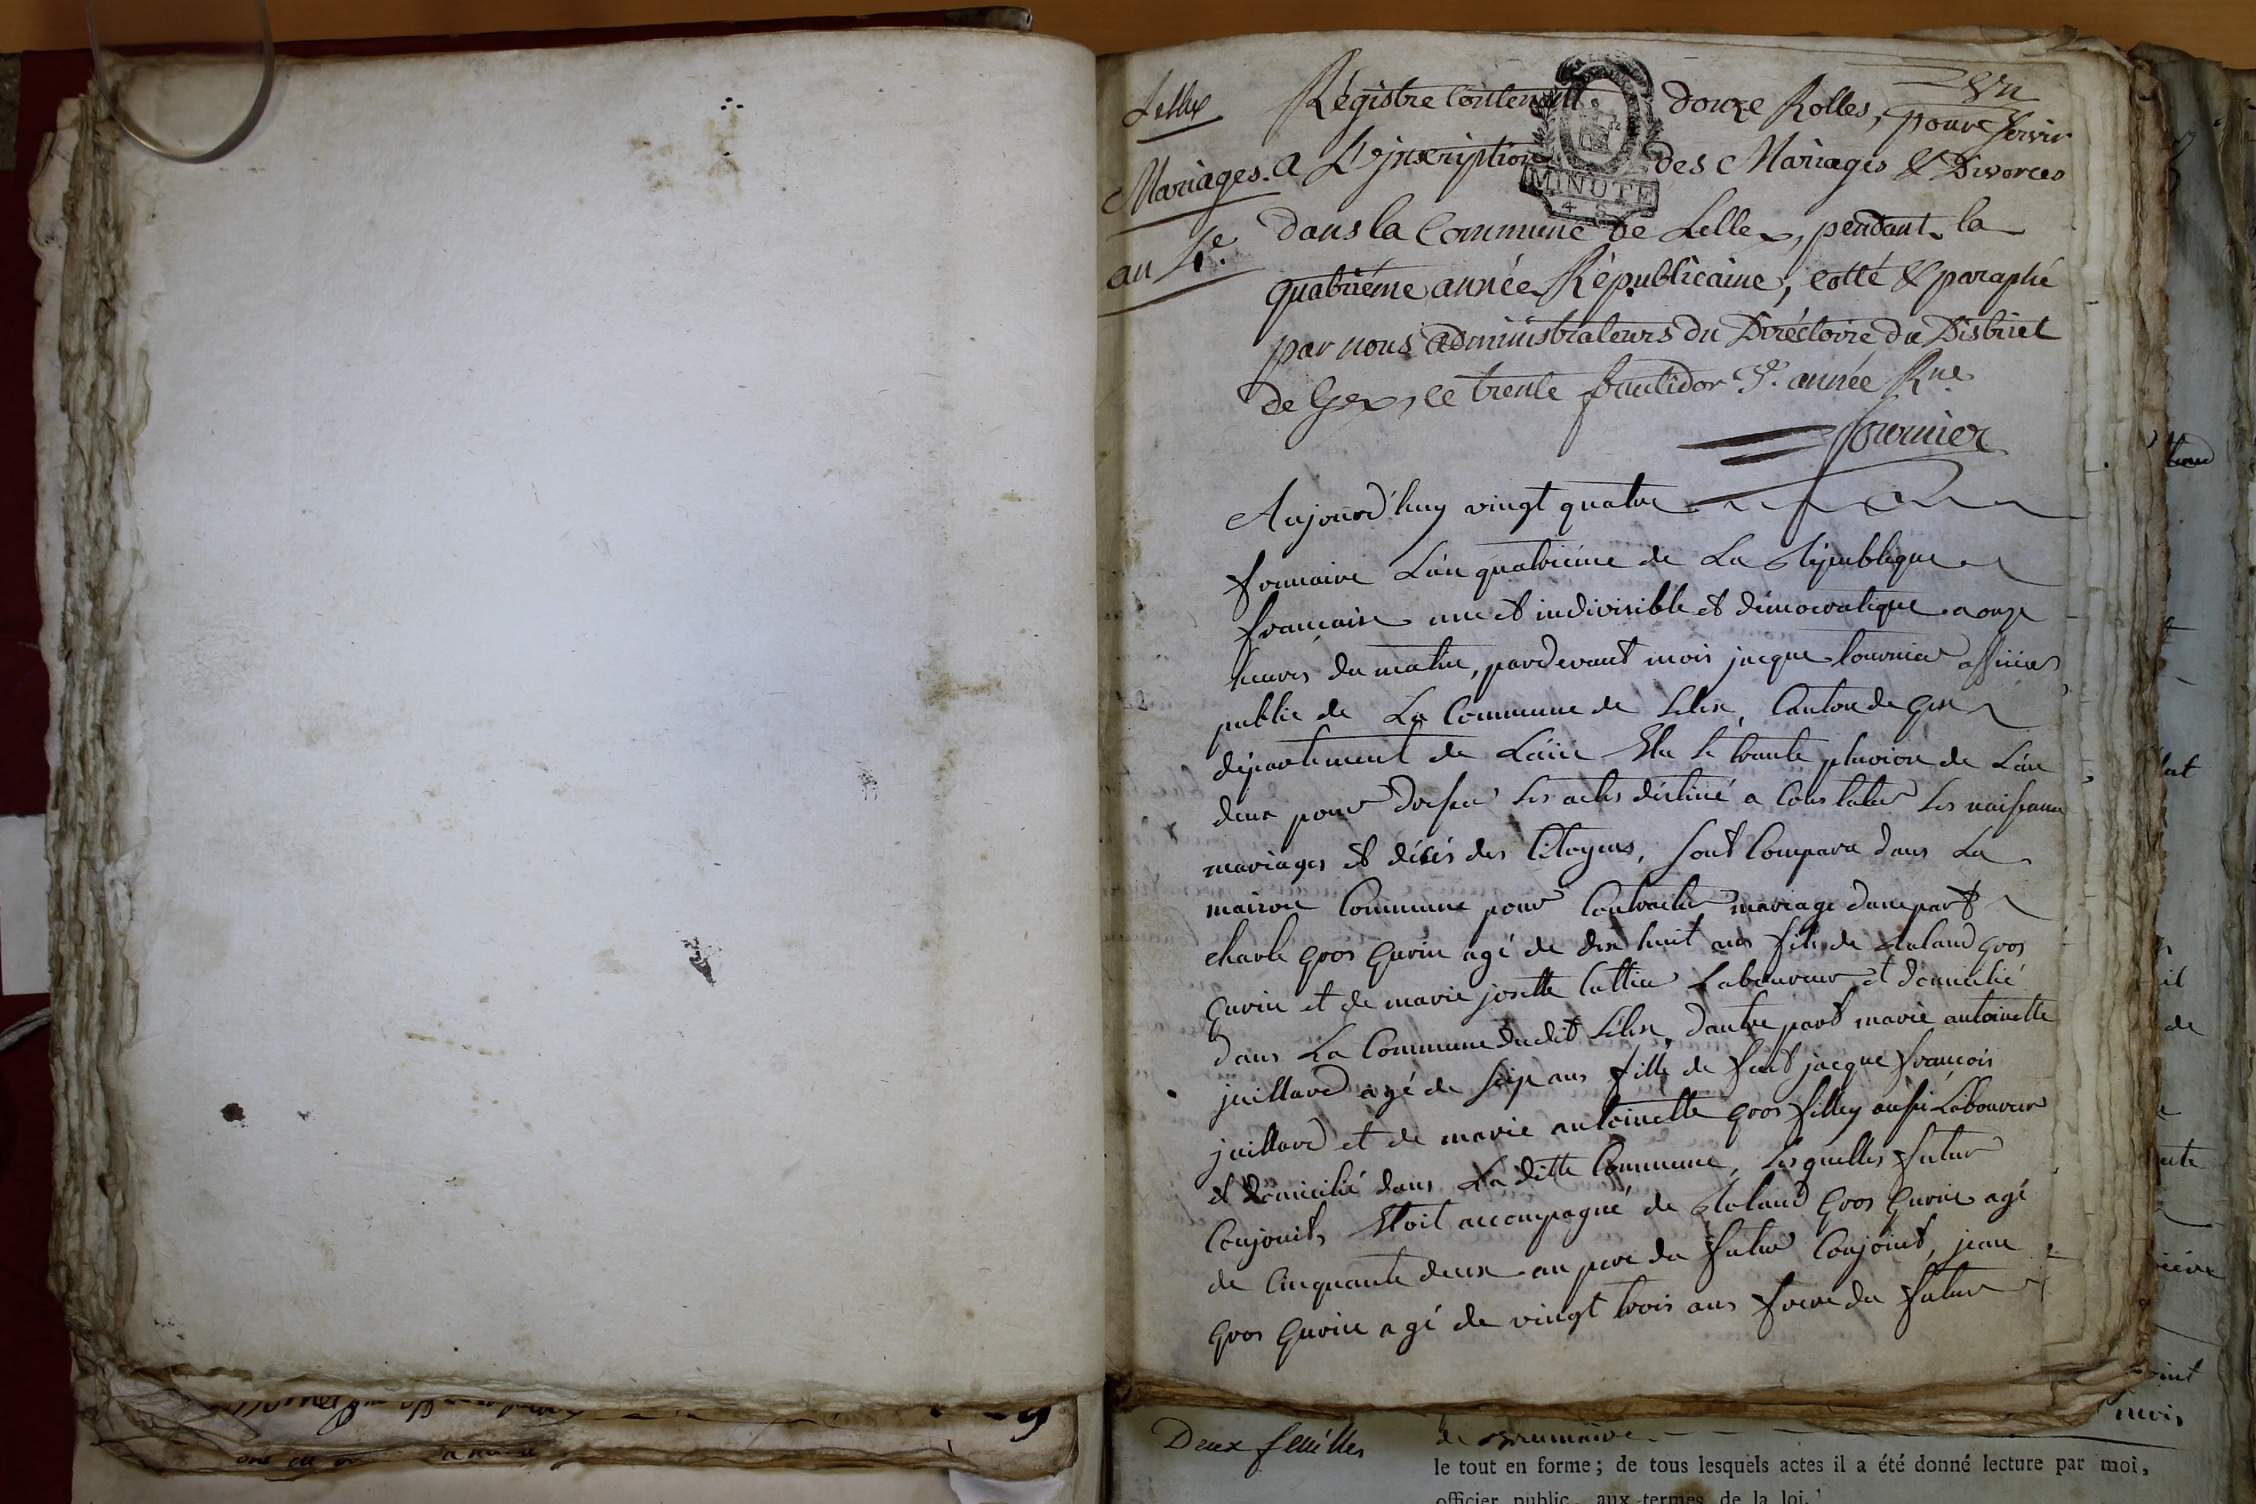 Lellex
Mariages.
an 4e.
un
Régistre Contenant douze Rolles, pour servir
a L'ynscription des Mariages & Divorces
MINUTE
dans la Commune de Lellex, pendant la
quatriéme année Républicaine, cotté & paraphé
par nous administrateurs du Diréctoire du District
de Gex, le trente fructidor 3e. année Rne
fournier
Aujourd'huy vingt quatre
frimaire L'an quatrieme de La République
francaise une et indivisible et démocratique a onze
heures du matin, pardevant mois jacque tournier officier
public de La Commune de Lelex, Canton de Gex
département de L'ain Elu le trante pluviose de L'an
deux pour dresser les actes destiné a Constater Les naissance
mariages et décés des Citoyens, sont Compara dans La
maison Commune pour Contracter mariage dune part
charle Gros Gurin agé de dix huit ans fils de Roland Gros
Gurin et de marie josette Lattier Laboureur et domicilié
dans La Commune dudit Lélex, dautre part marie antoinette
juillard agé de seize ans fille de feut jacque françois
juillard et de marie antoinette Gros filley aussi Laboureur
et domicilié dans La ditte Commune, Lesquelles futur
Conjoints Etoit accompagné de Roland Gros Gurin agé
de Cinquante deux an pere du futur Conjoint, jean
Gros Gurin agé de vingt trois ans frere du futur
Deux feuilles
de brumaire
le tout en forme ; de tous lesquels actes il a été donné lecture par moi,
officier public, aux termes de la loi.